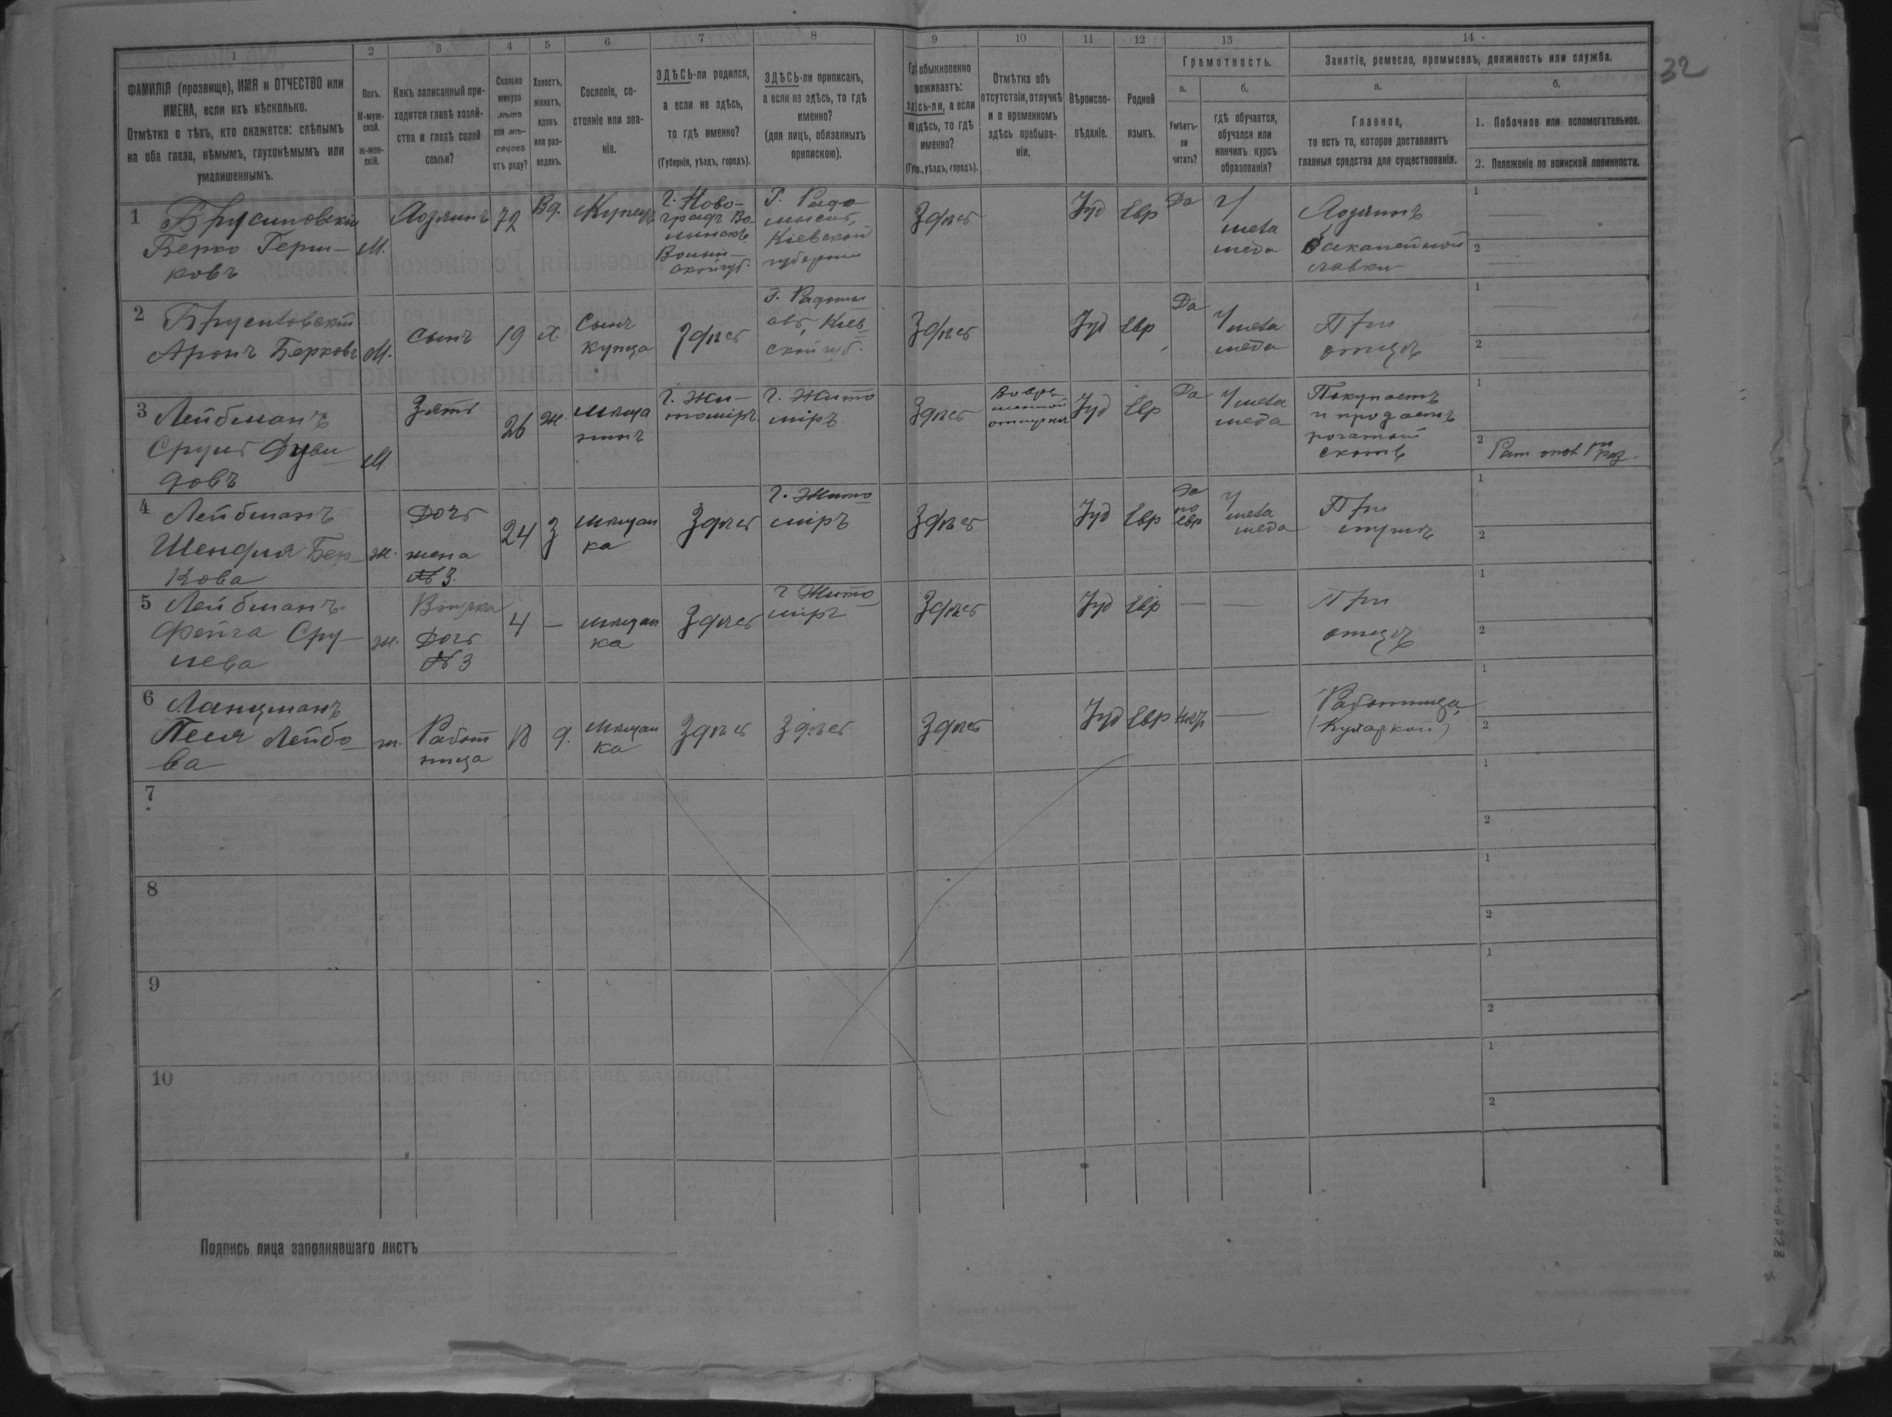 32
1 2 3 4 5 6 7 8 9 10 11 12 13 14
ФАМИЛІЯ (прозвище), ИМЯ и ОТЧЕСТВО или
ИМЕНА, если ихъ нѣсколько.
Отмѣтка о тѣхъ, кто окажется: слѣпымъ
на оба глаза, нѣмымъ, глухонѣмымъ или
умалишеннымъ.
Полъ.
М-муж-
ской.
ж-жен-
скій.
Какъ записанный при-
ходится главѣ хозяй-
ства и главѣ своей
семьи?
Сколько
минуло
лѣтъ
или мѣ-
сяцевъ
отъ роду?
Холостъ,
женатъ,
вдовъ
или раз-
веденъ.
Сословіе, со-
стояніе или зва-
ніе.
ЗДѢСЬ-ли родился,
а если не здѣсь,
то гдѣ именно?
(Губернія, уѣздъ, городъ).
ЗДѢСЬ-ли приписанъ,
а если не здѣсь, то гдѣ
именно?
(для лицъ, обязанныхъ
припискою).
Гдѣ обыкновенно
проживаетъ:
здѣсь-ли, а если
не здѣсь, то гдѣ
именно?
(Губ., уѣздъ, городъ).
Отмѣтка объ
отсутствіи, отлучкѣ
и о временномъ
здѣсь пребыва-
ніи.
Вѣроиспо-
вѣданіе.
Родной
языкъ.
Грамотность.
а.
Умѣетъ-
ли
читать?
б.
гдѣ обучается,
обучался или
кончилъ курсъ
образованія?
Занятіе, ремесло, промыселъ, должность или служба.
а.
Главное,
то есть то, которое доставляетъ
главныя средства для существованія.
б.
1. Побочное или вспомогательное.
2. Положеніе по воинской повинности.
1 Брусиловскій
Берко Герш-
ковъ
М.
Хозяинъ
72
Вд.
Купецъ
Г. Ново-
градъ Во
лынскъ
Волын-
ской губ.
Г. Радо
мысль,
Кіевской
губерніи
Здѣсь
Іуд
Евр
Да
У
мела
меда
Хозяинъ
бакалейной
лавки
1
2
2 Брусиловскій
Аронъ Берковъ
М.
Сынъ
19
Х
Сынъ
купца
Здѣсь
Г. Радомы
сль, Кіев-
ской губ.
Здѣсь
Іуд
Евр
Да
У мела
меда
При
отцѣ
1
2
3 Лейбманъ
Сруль Дуви-
довъ
М
Зять
26
Ж.
Мѣща
нинъ
Г. Жи-
томіръ
Г. Жито
міръ
Здѣсь
Во вре-
менной
отлучкѣ
Іуд
Евр
Да
У мела
меда
Покупаетъ
и продаетъ
рогатый
скотъ
1
2
4 Лейбманъ
Шендля Бер-
кова
ж.
Дочь
жена
№ 3.
24
З
Мѣщан
ка
Здѣсь
г. Жито
міръ
Здѣсь
Іуд
Евр
Да
по
евр
У мела
меда
При
мужѣ
1
2
5 Лейбманъ
Фейга Сру-
лева
ж.
Внучка
Дочь
№ 3
4
—
Мѣщан
ка
Здѣсь
г Жито
міръ
Здѣсь
Іуд
Евр
—
—
При
отцѣ
1
2
6 Ланцманъ
Песя Лейбо-
ва
ж.
Работ
ница
18
д.
Мѣщан
ка
Здѣсь
Здѣсь
Здѣсь
Іуд
Евр
Нѣтъ
—
Работница
(Кухаркой)
1
2
7
1
2
8
1
2
9
1
2
10
1
2
Подпись лица заполнявшаго листъ